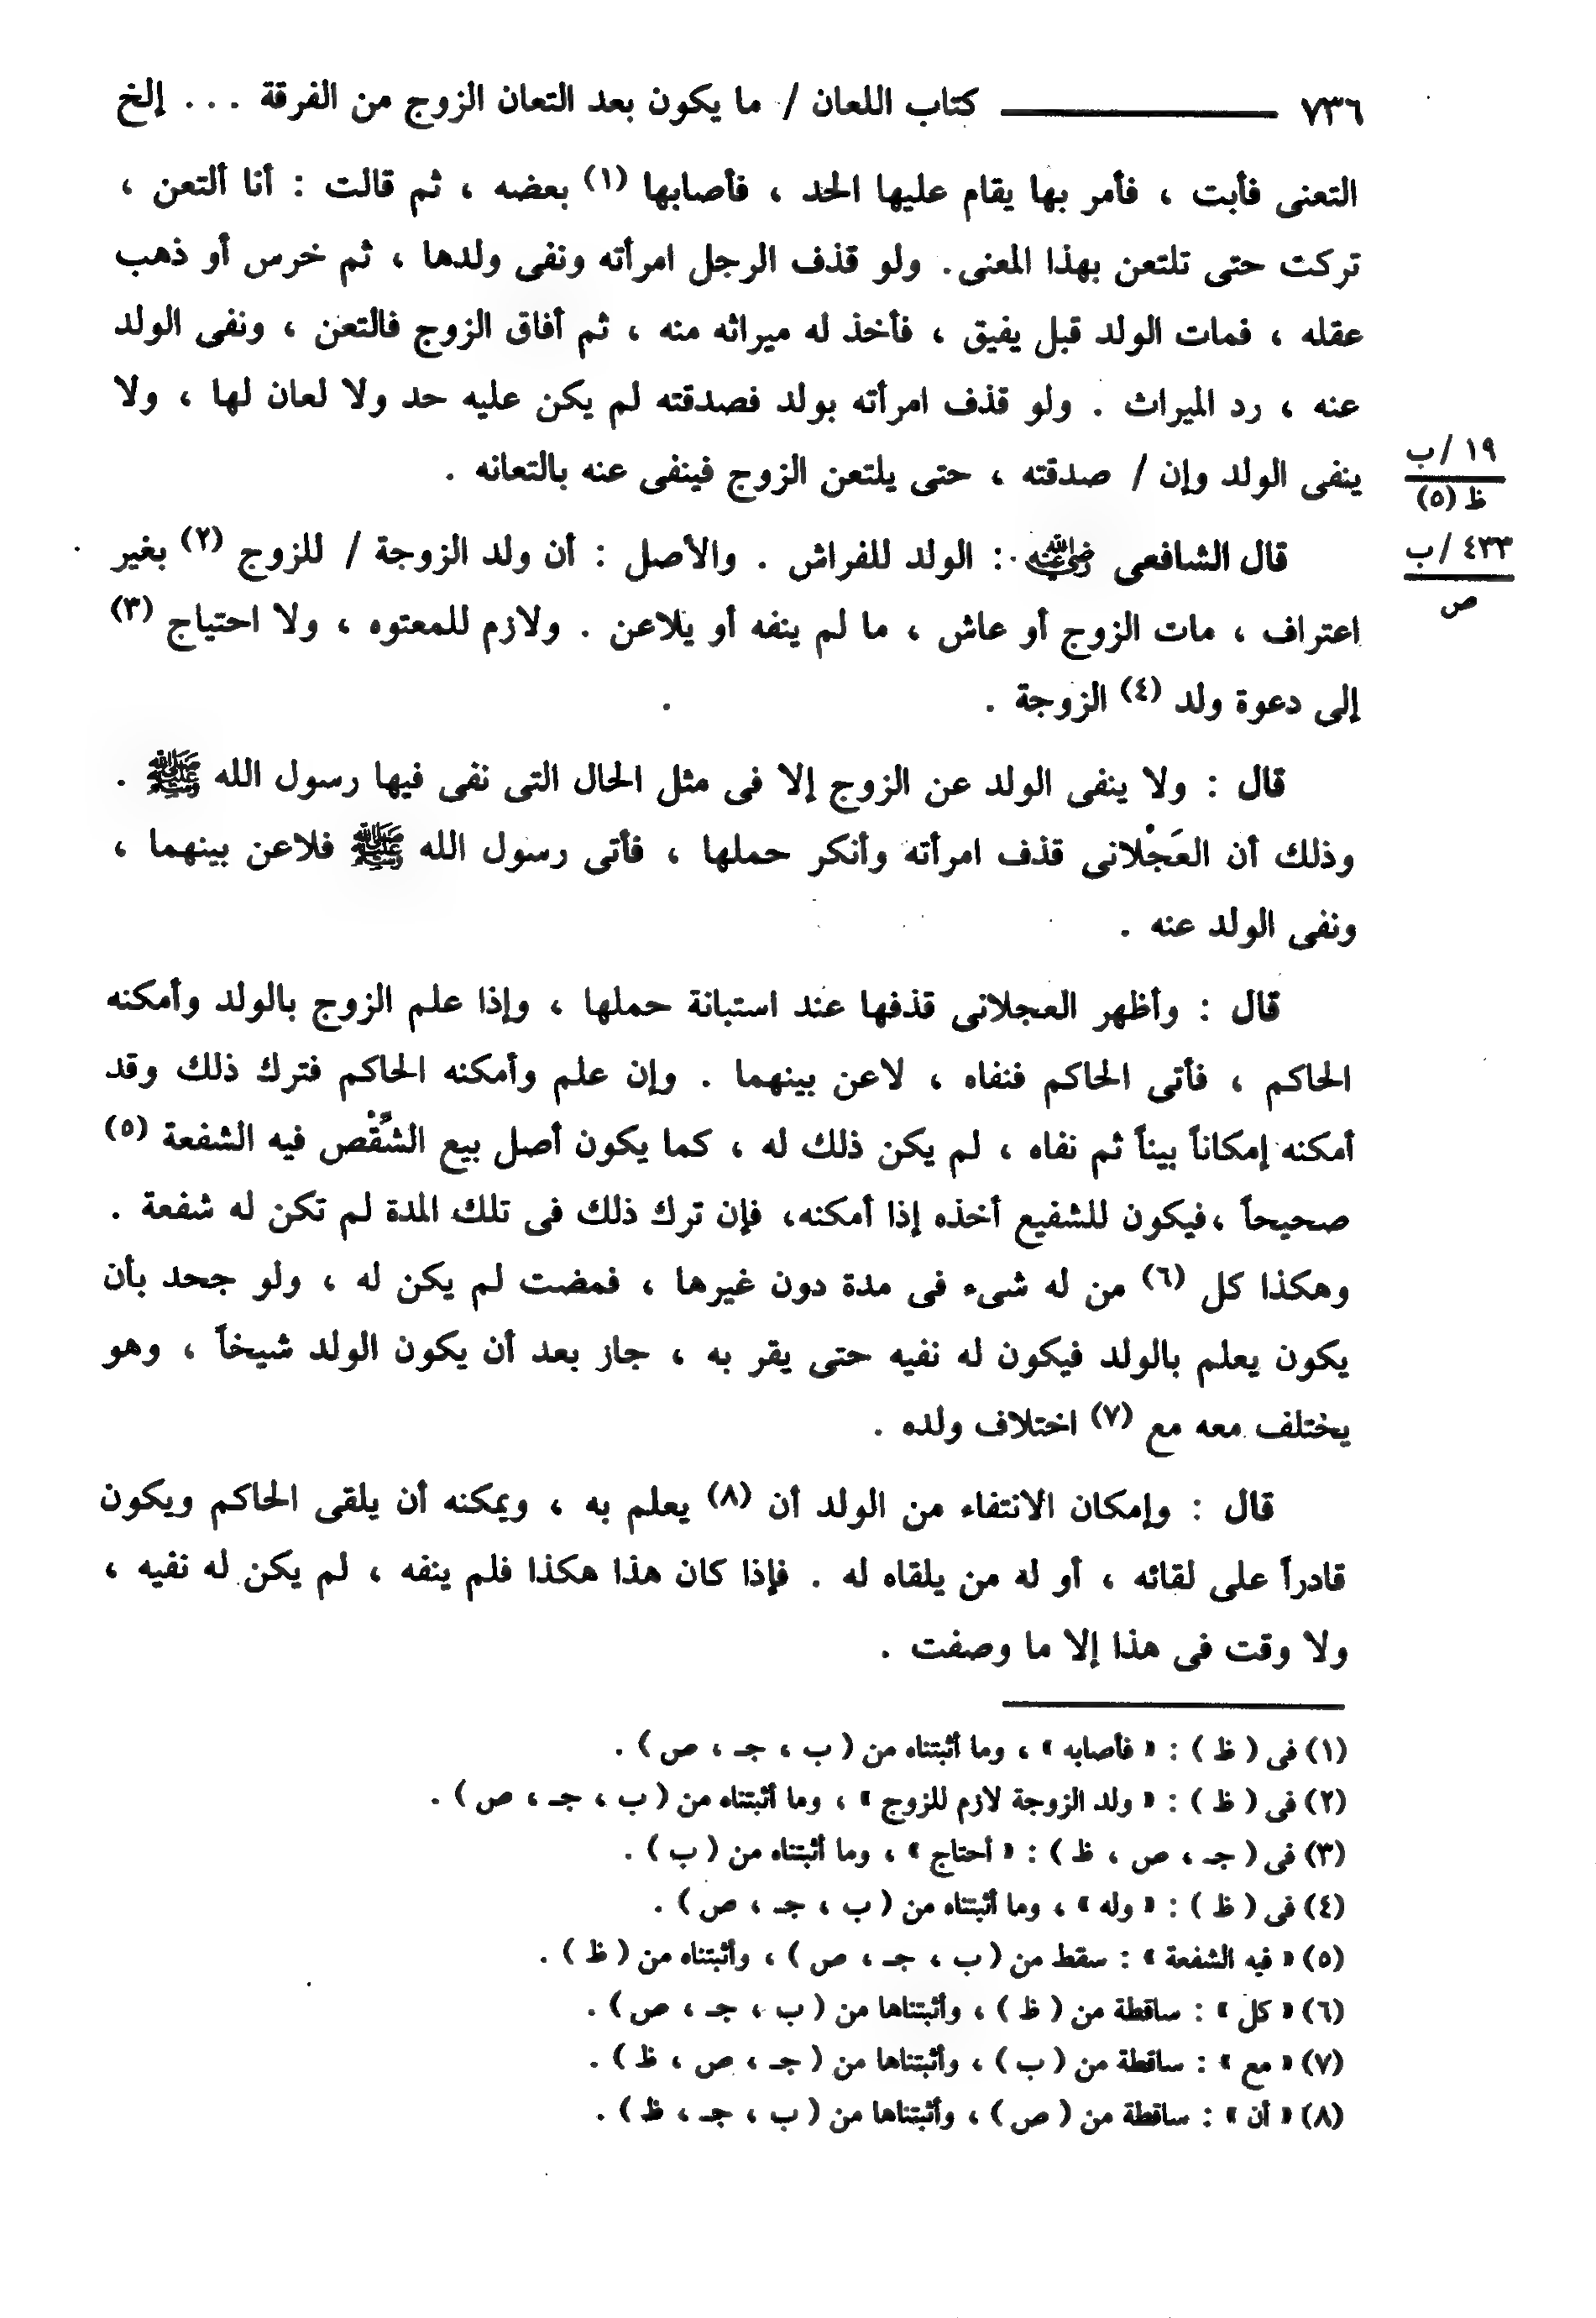 ٧٣٦ كتاب اللعان / ما يكون بعد التعان الزوج من الفرقة . . . إلخ
التعنى فأبت ، فأمر بها يقام عليها الحد ، فأصابها (١) بعضه ، ثم قالت : أنا ألتعن ،
تركت حتى تلتعن بهذا المعنى. ولو قذف الرجل امرأته ونفى ولدها ، ثم خرس أو ذهب
عقله ، فمات الولد قبل يفيق ، فأخذ له ميراثه منه ، ثم أفاق الزوج فالتعن ، ونفى الولد
عنه ، رد الميراث . ولو قذف امرأته بولد فصدقته لم يكن عليه حد ولا لعان لها ، ولا
ينفى الولد وإن / صدقته ، حتى يلتعن الزوج فينفى عنه بالتعانه .
١٩ /ب
ظ (٥)
قال الشافعى رضي الله عنه : الولد للفراش . والأصل : أن ولد الزوجة / للزوج (٢) بغير
٤٣٣ /ب
ص
اعتراف ، مات الزوج أو عاش ، ما لم ينفه أو يلاعن . ولازم للمعتوه ، ولا احتياج (٣)
إلى دعوة ولد (٤) الزوجة .
قال : ولا ينفى الولد عن الزوج إلا فى مثل الحال التى نفى فيها رسول الله ﷺ .
وذلك أن العَجْلانى قذف امرأته وأنكر حملها ، فأتى رسول الله ﷺ فلاعن بينهما ،
ونفى الولد عنه .
قال : وأظهر العجلانى قذفها عند استبانة حملها ، وإذا علم الزوج بالولد وأمكنه
الحاكم ، فأتى الحاكم فنفاه ، لاعن بينهما . وإن علم وأمكنه الحاكم فترك ذلك وقد
أمكنه إمكاناً بيناً ثم نفاه ، لم يكن ذلك له ، كما يكون أصل بيع الشِّقْص فيه الشفعة (٥)
صحيحاً ،فيكون للشفيع أخذه إذا أمكنه، فإن ترك ذلك فى تلك المدة لم تكن له شفعة .
وهكذا كل (٦) من له شىء فى مدة دون غيرها ، فمضت لم يكن له ، ولو جحد بأن
يكون يعلم بالولد فيكون له نفيه حتى يقر به ، جاز بعد أن يكون الولد شيخاً ، وهو
يختلف معه مع (٧) اختلاف ولده .
قال : وإمكان الانتفاء من الولد أن (٨) يعلم به ، ويمكنه أن يلقى الحاكم ويكون
قادراً على لقائه ، أو له من يلقاه له . فإذا كان هذا هكذا فلم ينفه ، لم يكن له نفيه ،
ولا وقت فى هذا إلا ما وصفت .
(١) فى ( ظ ) : « فأصابه » ، وما أثبتناه من ( ب ، جـ ، ص ) .
(٢) فى ( ظ ) : « ولد الزوجة لازم للزوج » ، وما أثبتناه من ( ب ، جـ ، ص ) .
(٣) فى ( جـ ، ص ، ظ ) : « أحتاج » ، وما أثبتناه من ( ب ) .
(٤) فى ( ظ ) : « وله » ، وما أثبتناه من ( ب ، جـ ، ص ) .
(٥) « فيه الشفعة » : سقط من ( ب ، جـ ، ص ) ، وأثبتناه من ( ظ ) .
(٦) « كل » : ساقطة من ( ظ ) ، وأثبتناها من ( ب ، جـ ، ص ) .
(٧) « مع » : ساقطة من ( ب ) ، وأثبتناها من ( جـ ، ص ، ظ ) .
(٨) « أن » : ساقطة من ( ص ) ، وأثبتناها من ( ب ، جـ ، ظ ) .